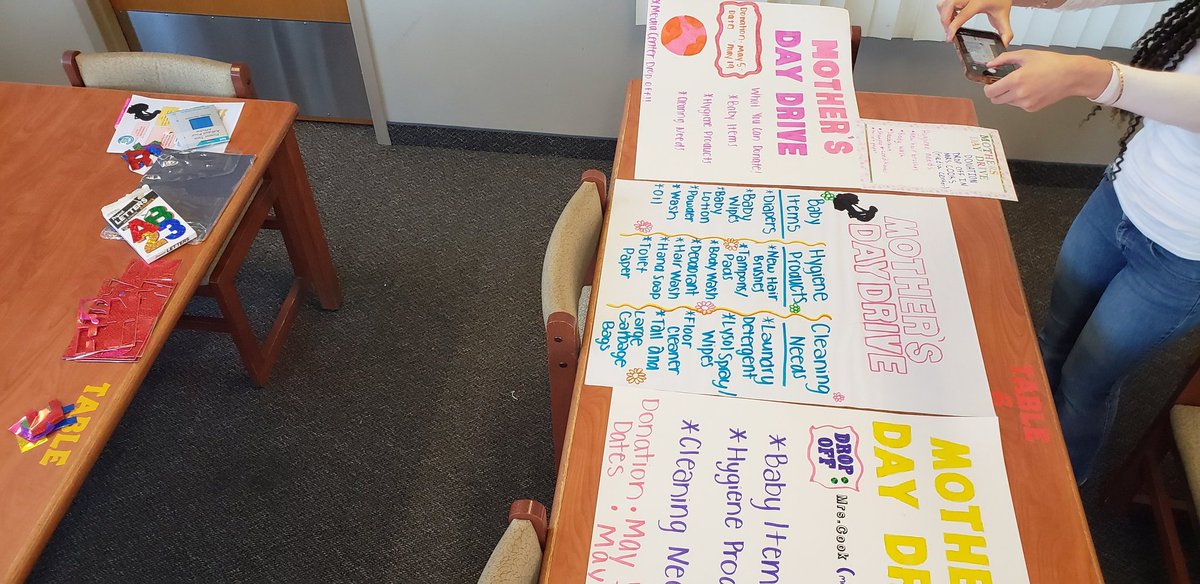 MOTHER'S
DAY DRIVE
Donation: May 5
Date May 19
What You Can Donate!
*Baby Items
*Hygiene Products
*Cleaning Needs
Media Center Drop off!!
MOTHER'S
DAY DRIVE
DONATION
DROP OFF IN
MRS COOKS
MEDIA CENTER
MOTHER'S
DAY DRIVE
Baby
Items
*Diapers
*Baby
Wipes
*Baby
Lotion
*Powder
*Wash
*Oil
Hygiene
Products
*New Hair
Brushes
*Tampons/
Pads
*Body Wash
*Deodorant
*Hair Wash
*Hand Soap
*Toilet
Paper
Cleaning
Needs
*Laundry
Detergent
*Lysol Spray/
Wipes
*Floor
Cleaner
*Tall and
Large
Garbage
Bags
MOTHE
DAY DR
DROP OFF: Mrs. Cook
*Baby Item
*Hygiene Prod
*Cleaning Nee
Donation • May
Dates • May
TABLE
TABLE
LETTERS
AB3